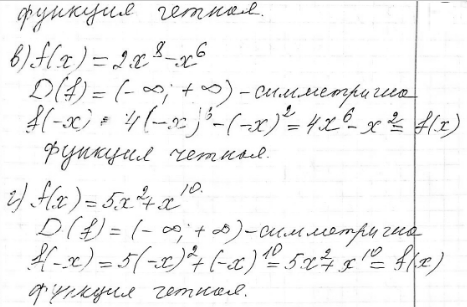 функция четная.
в) f(x) = 2x⁸ - x⁶
D(f) = (-∞; +∞) - симметрична
f(-x) = 4(-x)⁶ - (-x)² = 4x⁶ - x² = f(x)
функция четная.
г) f(x) = 5x² + x¹⁰.
D(f) = (-∞; +∞) - симметрична
f(-x) = 5(-x)² + (-x)¹⁰ = 5x² + x¹⁰ = f(x)
функция четная.